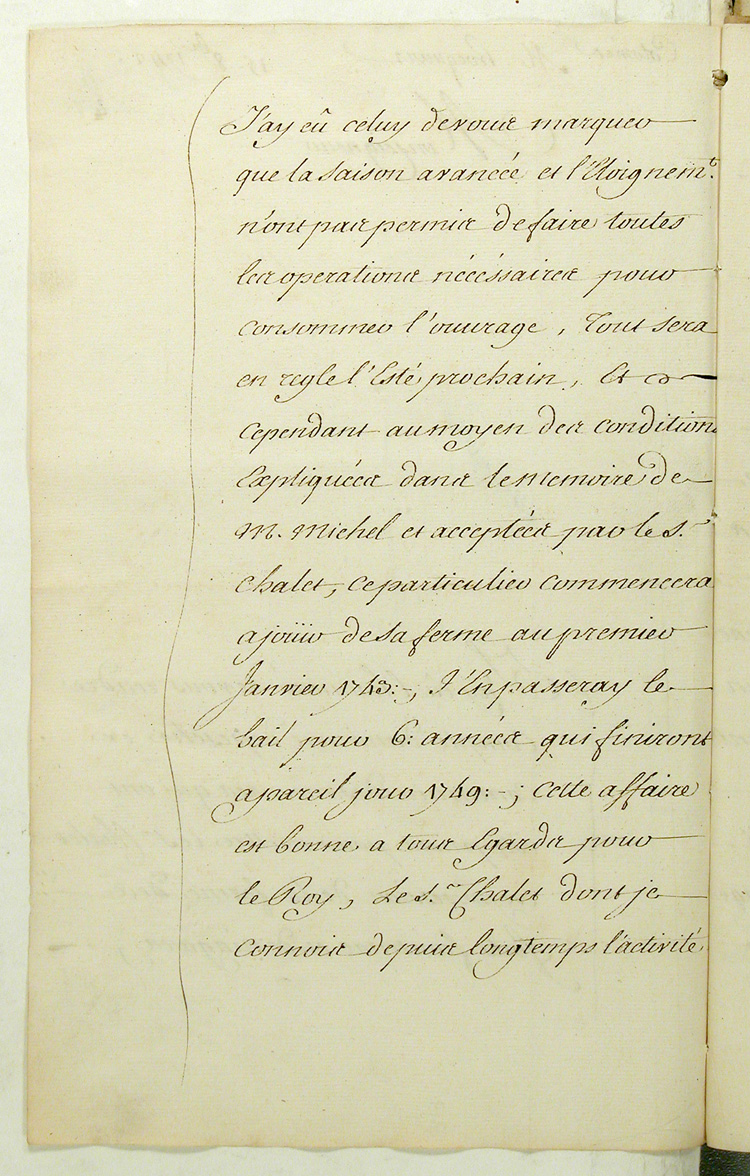 J'ay eû celuy de vous marquer
que la saison avancée et l'Eloignem.t
n'ont pas permis de faire toutes
les operations nécéssaires pour
consommer l'ouvrage, Tout sera
en regle l'Esté prochain, Et
cependant au moyen des conditions
Expliquées dans le memoire de
M. Michel et acceptées par le S.r
Chalet, ce particulier commencera
a joüir de sa ferme au premier
Janvier 1743:-; J'En passeray le
bail pour 6: années qui finiront
a pareil jour 1749:-; Cette affaire
est bonne a tous Egards pour
le Roy, Le S.r Chalet dont je
connois depuis longtemps l'activité